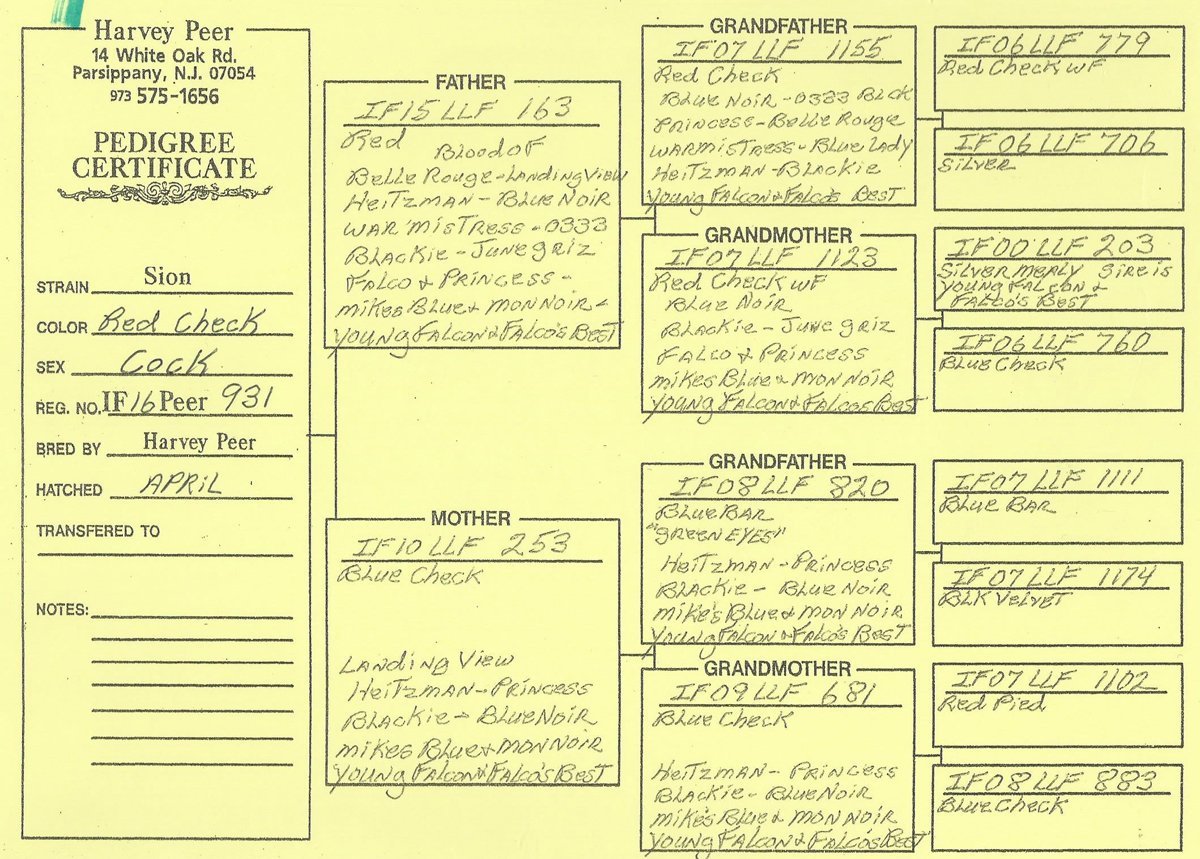 Harvey Peer
14 White Oak Rd.
Parsippany, N.J. 07054
973 575-1656
PEDIGREE
CERTIFICATE
STRAIN Sion
COLOR Red Check
SEX Cock
REG. NO. IF16 Peer 931
BRED BY Harvey Peer
HATCHED APRIL
TRANSFERED TO
NOTES:
FATHER
IF15 LLF 163
Red
Blood OF
Belle Rouge-Landing View
Heitzman - Blue Noir
War'mistress - 0333
Blackie - June griz
Falco & Princess -
mikes Blue & mon Noir -
young Falcon & Falco's Best
MOTHER
IF10 LLF 253
Blue Check
Landing View
Heitzman - Princess
Blackie - Blue Noir
mikes Blue & mon Noir
young Falcon & Falco's Best
GRANDFATHER
IF07 LLF 1155
Red Check
Blue Noir - 0333 Blck
Princess - Belle Rouge
warmistress - Blue Lady
Heitzman - Blackie
young Falcon & Falco's Best
GRANDMOTHER
IF07 LLF 1123
Red Check wF
Blue Noir
Blackie - June griz
Falco & Princess
mikes Blue & mon Noir
young Falcon & Falcos Best
GRANDFATHER
IF08 LLF 820
Blue Bar
"green Eyes"
Heitzman - Princess
Blackie - Blue Noir
mike's Blue & mon Noir
young Falcon & Falco's Best
GRANDMOTHER
IF09 LLF 681
Blue Check
Heitzman - Princess
Blackie - Blue Noir
mike's Blue & mon Noir
young Falcon & Falco's Best
IF06 LLF 779
Red Check wF
IF06 LLF 706
Silver
IF00 LLF 203
Silver mealy Sire is
young Falcon &
Falco's Best
IF06 LLF 760
Blue Check
IF07 LLF 1111
Blue Bar
IF07 LLF 1174
BLK Velvet
IF07 LLF 1102
Red Pied
IF08 LLF 883
Blue Check